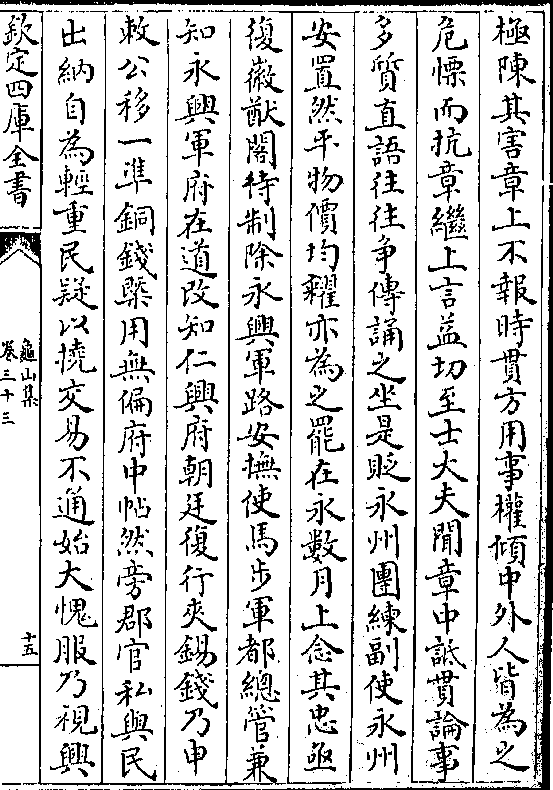 極陳其害章上不報時貫方用事權傾中外人皆為之
危慄而抗章繼上言益切至士大夫聞章中詆貫論事
多質直語往往爭傳誦之坐是貶永州團練副使永州
安置然平物價均糴亦為之罷在永數月上念其忠亟
復徽猷閣待制除永興軍路安撫使馬步軍都總管兼
知永興軍府在道改知仁興府朝廷復行夾錫錢乃申
敕公移一準銅錢槩用無偏府中帖然旁郡官私與民
出納自為輕重民疑以撓交易不通始大愧服乃視興
欽定四庫全書
龜山集
卷三十三
十五